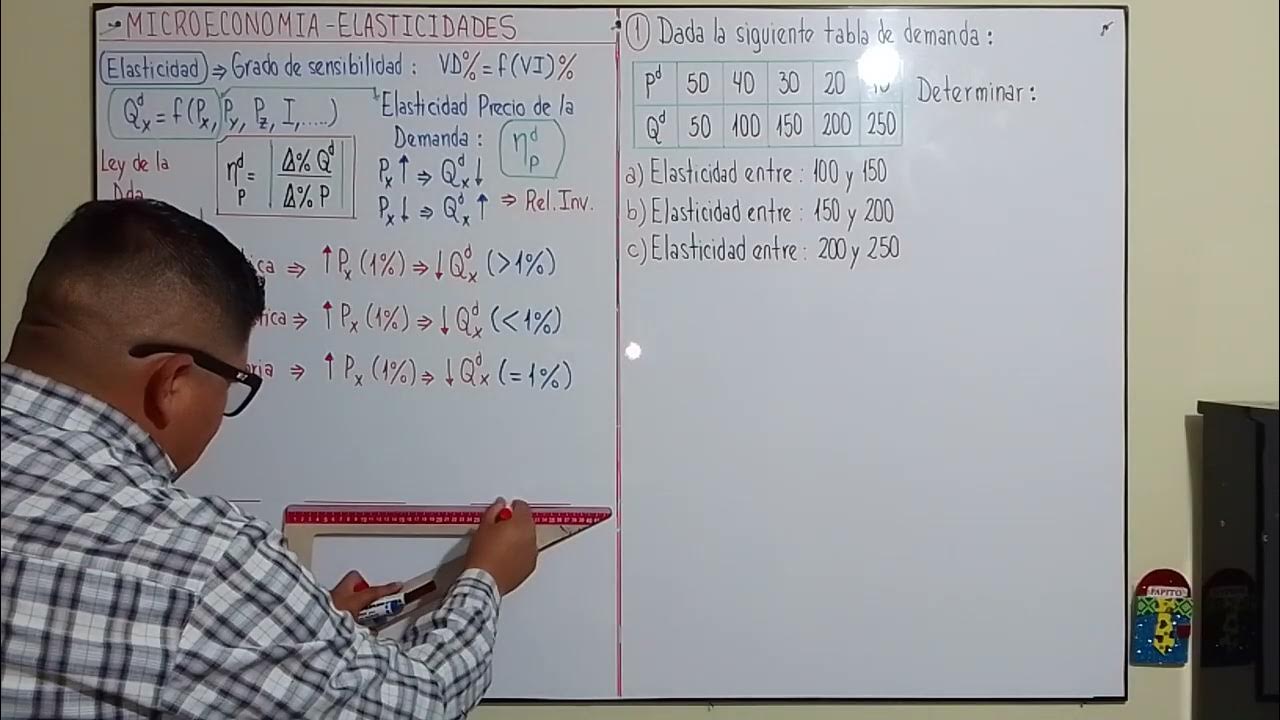 MICROECONOMIA - ELASTICIDADES
Elasticidad ⇒ Grado de sensibilidad : VD% = f(VI)%
Qxᵈ = f(Px, Py, Pz, I, .....)
Elasticidad Precio de la
Demanda : ηpᵈ
Ley de la
Dda
ηpᵈ = | Δ% Qᵈ / Δ% P |
Px ↑ ⇒ Qxᵈ ↓
Px ↓ ⇒ Qxᵈ ↑ ⇒ Rel. Inv.
⇒ ↑ Px (1%) ⇒ ↓ Qxᵈ (>1%)
⇒ ↑ Px (1%) ⇒ ↓ Qxᵈ (<1%)
⇒ ↑ Px (1%) ⇒ ↓ Qxᵈ (=1%)
① Dada la siguiente tabla de demanda :
Pᵈ 50 40 30 20
Qᵈ 50 100 150 200 250
Determinar :
a) Elasticidad entre : 100 y 150
b) Elasticidad entre : 150 y 200
c) Elasticidad entre : 200 y 250
PAPITO